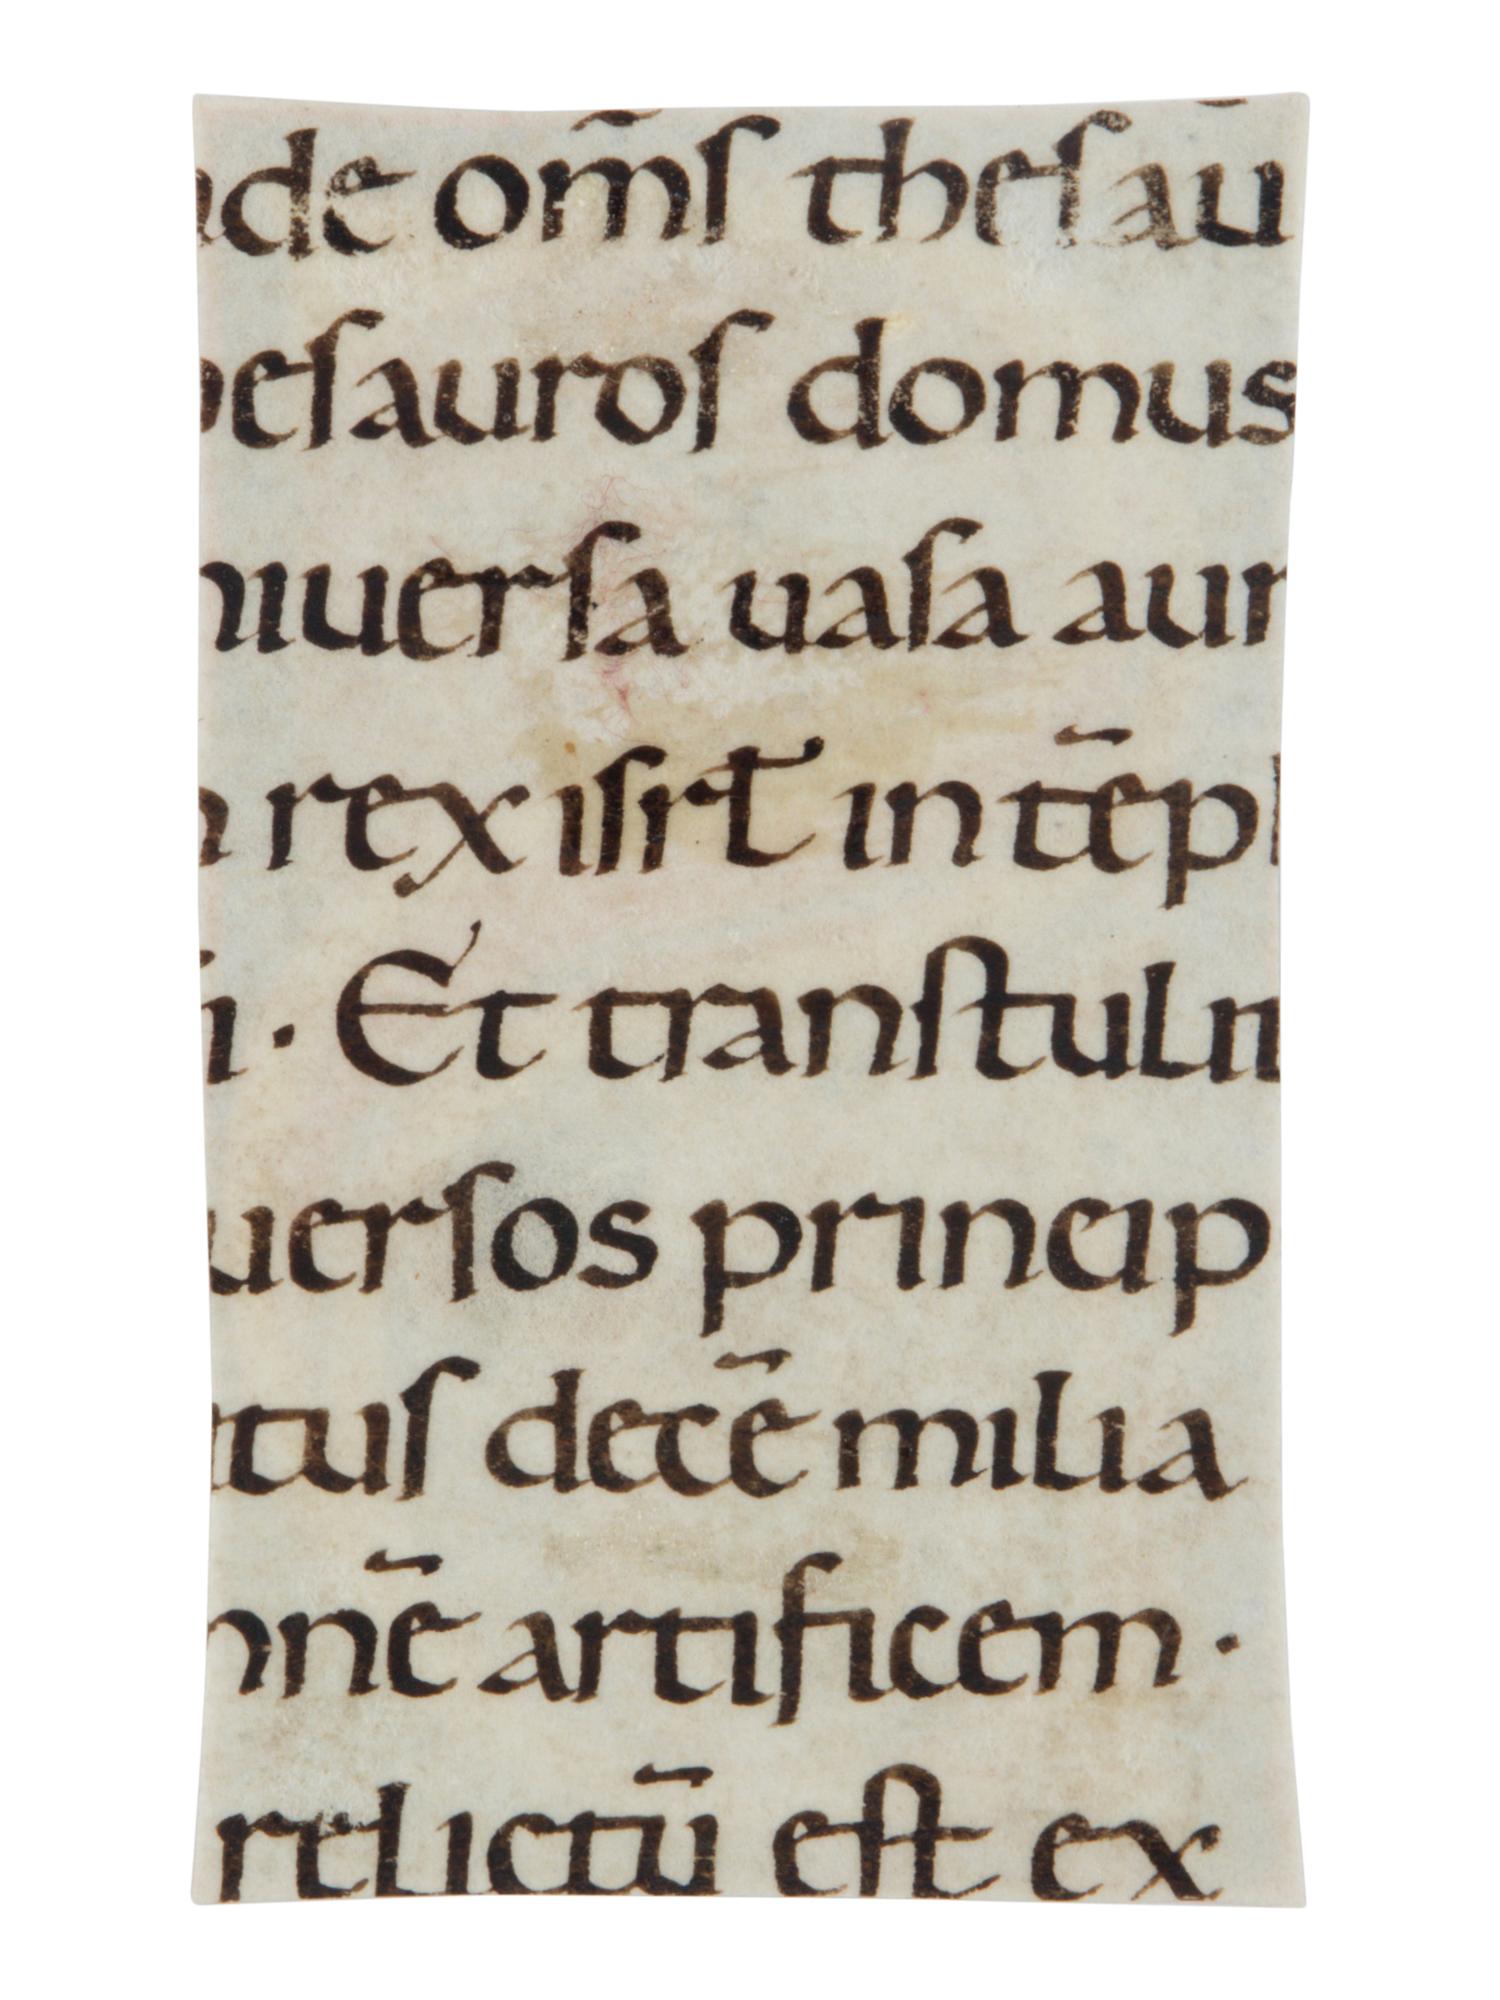 nde om̄s thesaū
hesauros domus
niuersa uasa aur
n rex isrł in tēpl
i · Et transtulit
uersos princip
tus decē milia
mnē artificem ·
relictū est ex